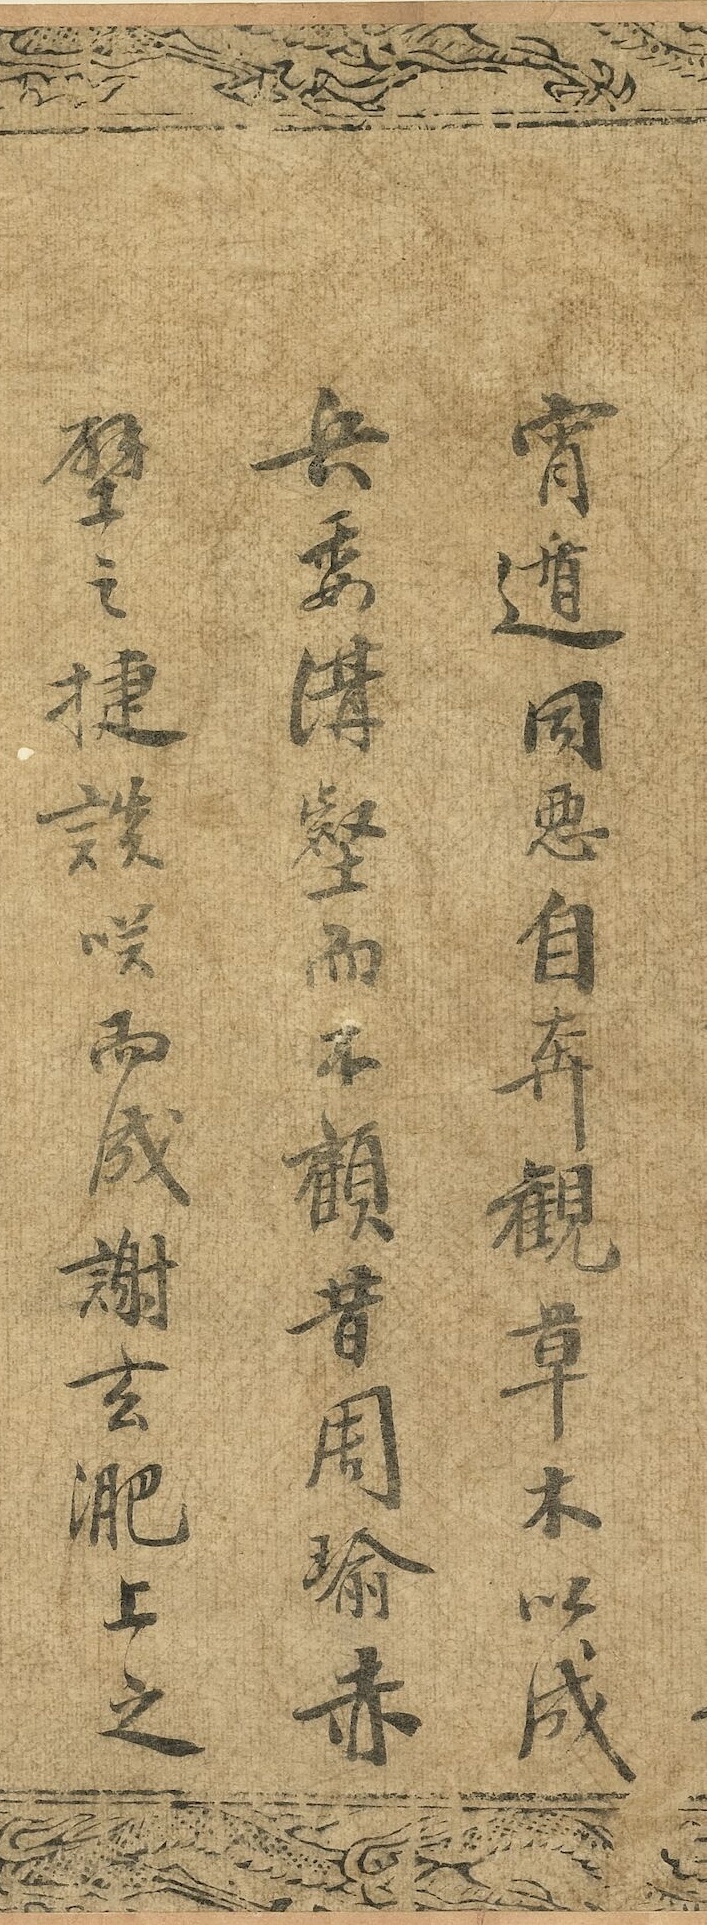 宵遁同惡自奔觀草木以成
兵委溝壑而不顧昔周瑜赤
壁之捷談咲而成謝玄淝上之